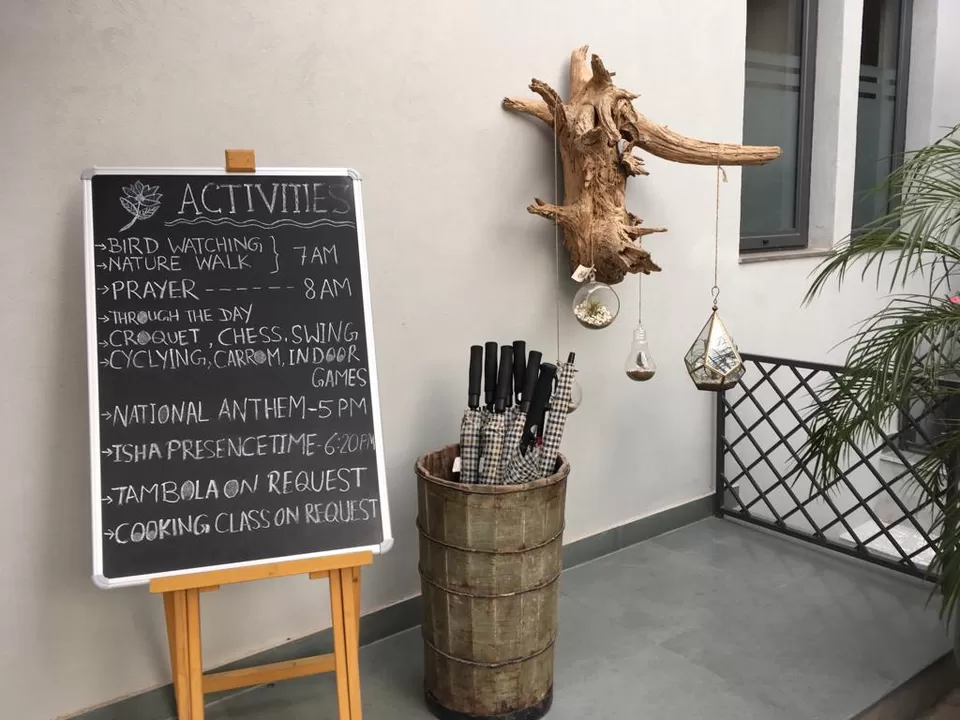 ACTIVITIES
→BIRD WATCHING,
→NATURE WALK } 7 AM
→PRAYER ------ 8 AM
→THROUGH THE DAY
→CROQUET, CHESS, SWING
→CYCLYING, CARROM, INDOOR
GAMES
→NATIONAL ANTHEM-5 PM
→ISHA PRESENCETIME-6:20PM
→TAMBOLA ON REQUEST
→COOKING CLASS ON REQUEST